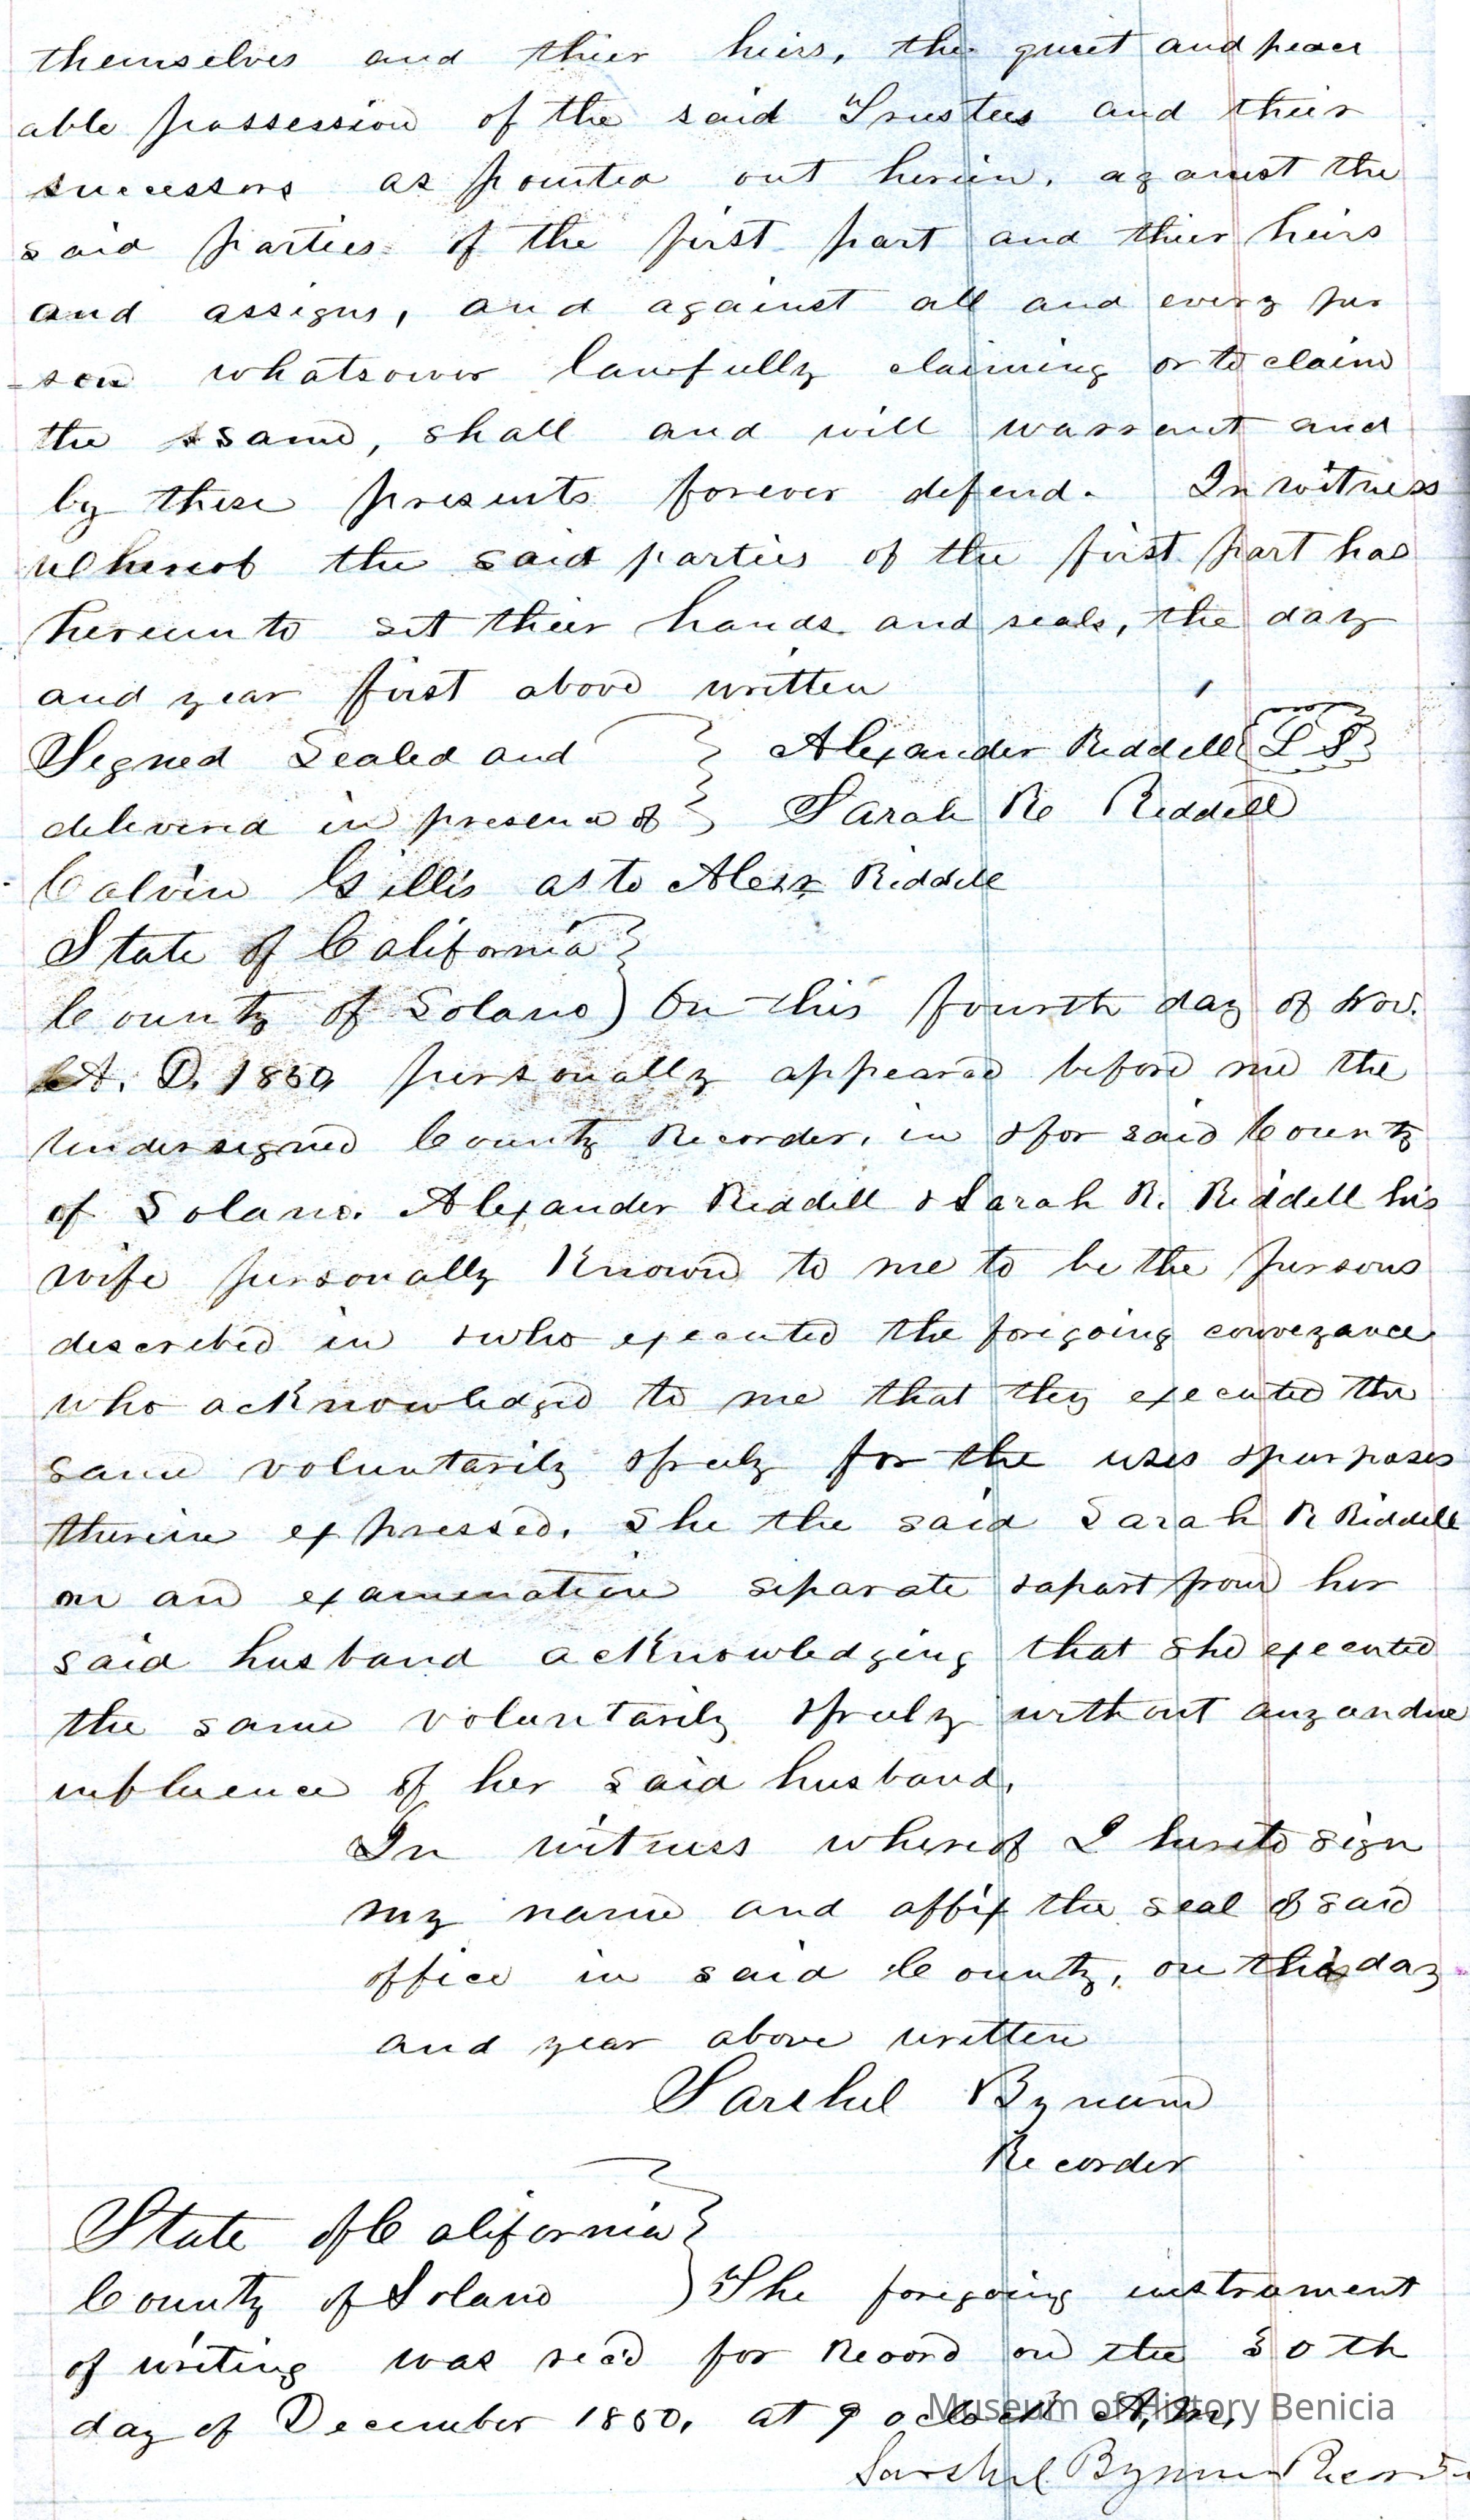 themselves and thier heirs, the quiet and peace
able possession of the said Trustees and their
successors as pointed out herein, against the
said parties of the first part and thier heirs
and assigns, and against all and every per
-son whatsoever lawfully claiming or to claim
the same, shall and will warrant and
by these presents forever defend. In witness
whereof the said parties of the first part has
hereunto set their hands and seals, the day
and year first above written
Signed Sealed and } Alexander Riddell (L S)
delivered in presence of } Sarah R Riddell
Calvin Gillis as to Alexr Riddell
State of California }
County of Solano ) On this fourth day of Nov.
A. D. 1850, personally appeared before me the
undersigned County Recorder, in & for said County
of Solano. Alexander Riddell & Sarah R. Riddell his
wife personally Known to me to be the persons
described in & who executed the foregoing conveyance
who acknowledged to me that they executed the
same voluntarily & freely for the uses & purposes
therein expressed. She the said Sarah R Riddell
on an examination separate & apart from her
said husband acknowledging that she executed
the same voluntarily & freely without any undue
influence of her said husband.
In witness whereof I hereto sign
my name and affix the seal of said
office in said County, on this day
and year above written
Sarshel Bynum
Recorder
State of California }
County of Solano ) The foregoing instrument
of writing was rec'd for Record on the 30th
day of December 1850, at 9 oclock A, M,
Sarshel Bynum Recorder
Museum of History Benicia